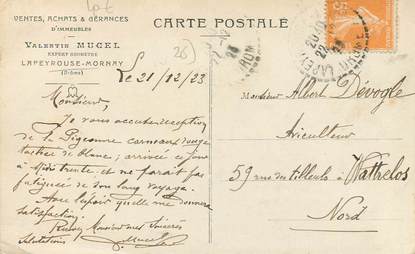 VENTES, ACHATS & GÉRANCES
D'IMMEUBLES
VALENTIN MUCEL
EXPERT GÉOMÈTRE
LAPEYROUSE-MORNAY
(Drôme)
CARTE POSTALE
(26)
Le 21/12/23
Monsieur,
Je vous accuse réception
de la Pigeonne carneaux rouge
de blanc; arrivée ce jour
à Midi trente et ne parait pas
fatiguée de son long voyage.
Avec l'espoir qu'elle me donnera
satisfaction.
Recevez Monsieur mes Sincères
Salutations
Mucel
Monsieur Albert Dévogle
Aviculteur
59 rue des tilleuls à Wattrelos
Nord